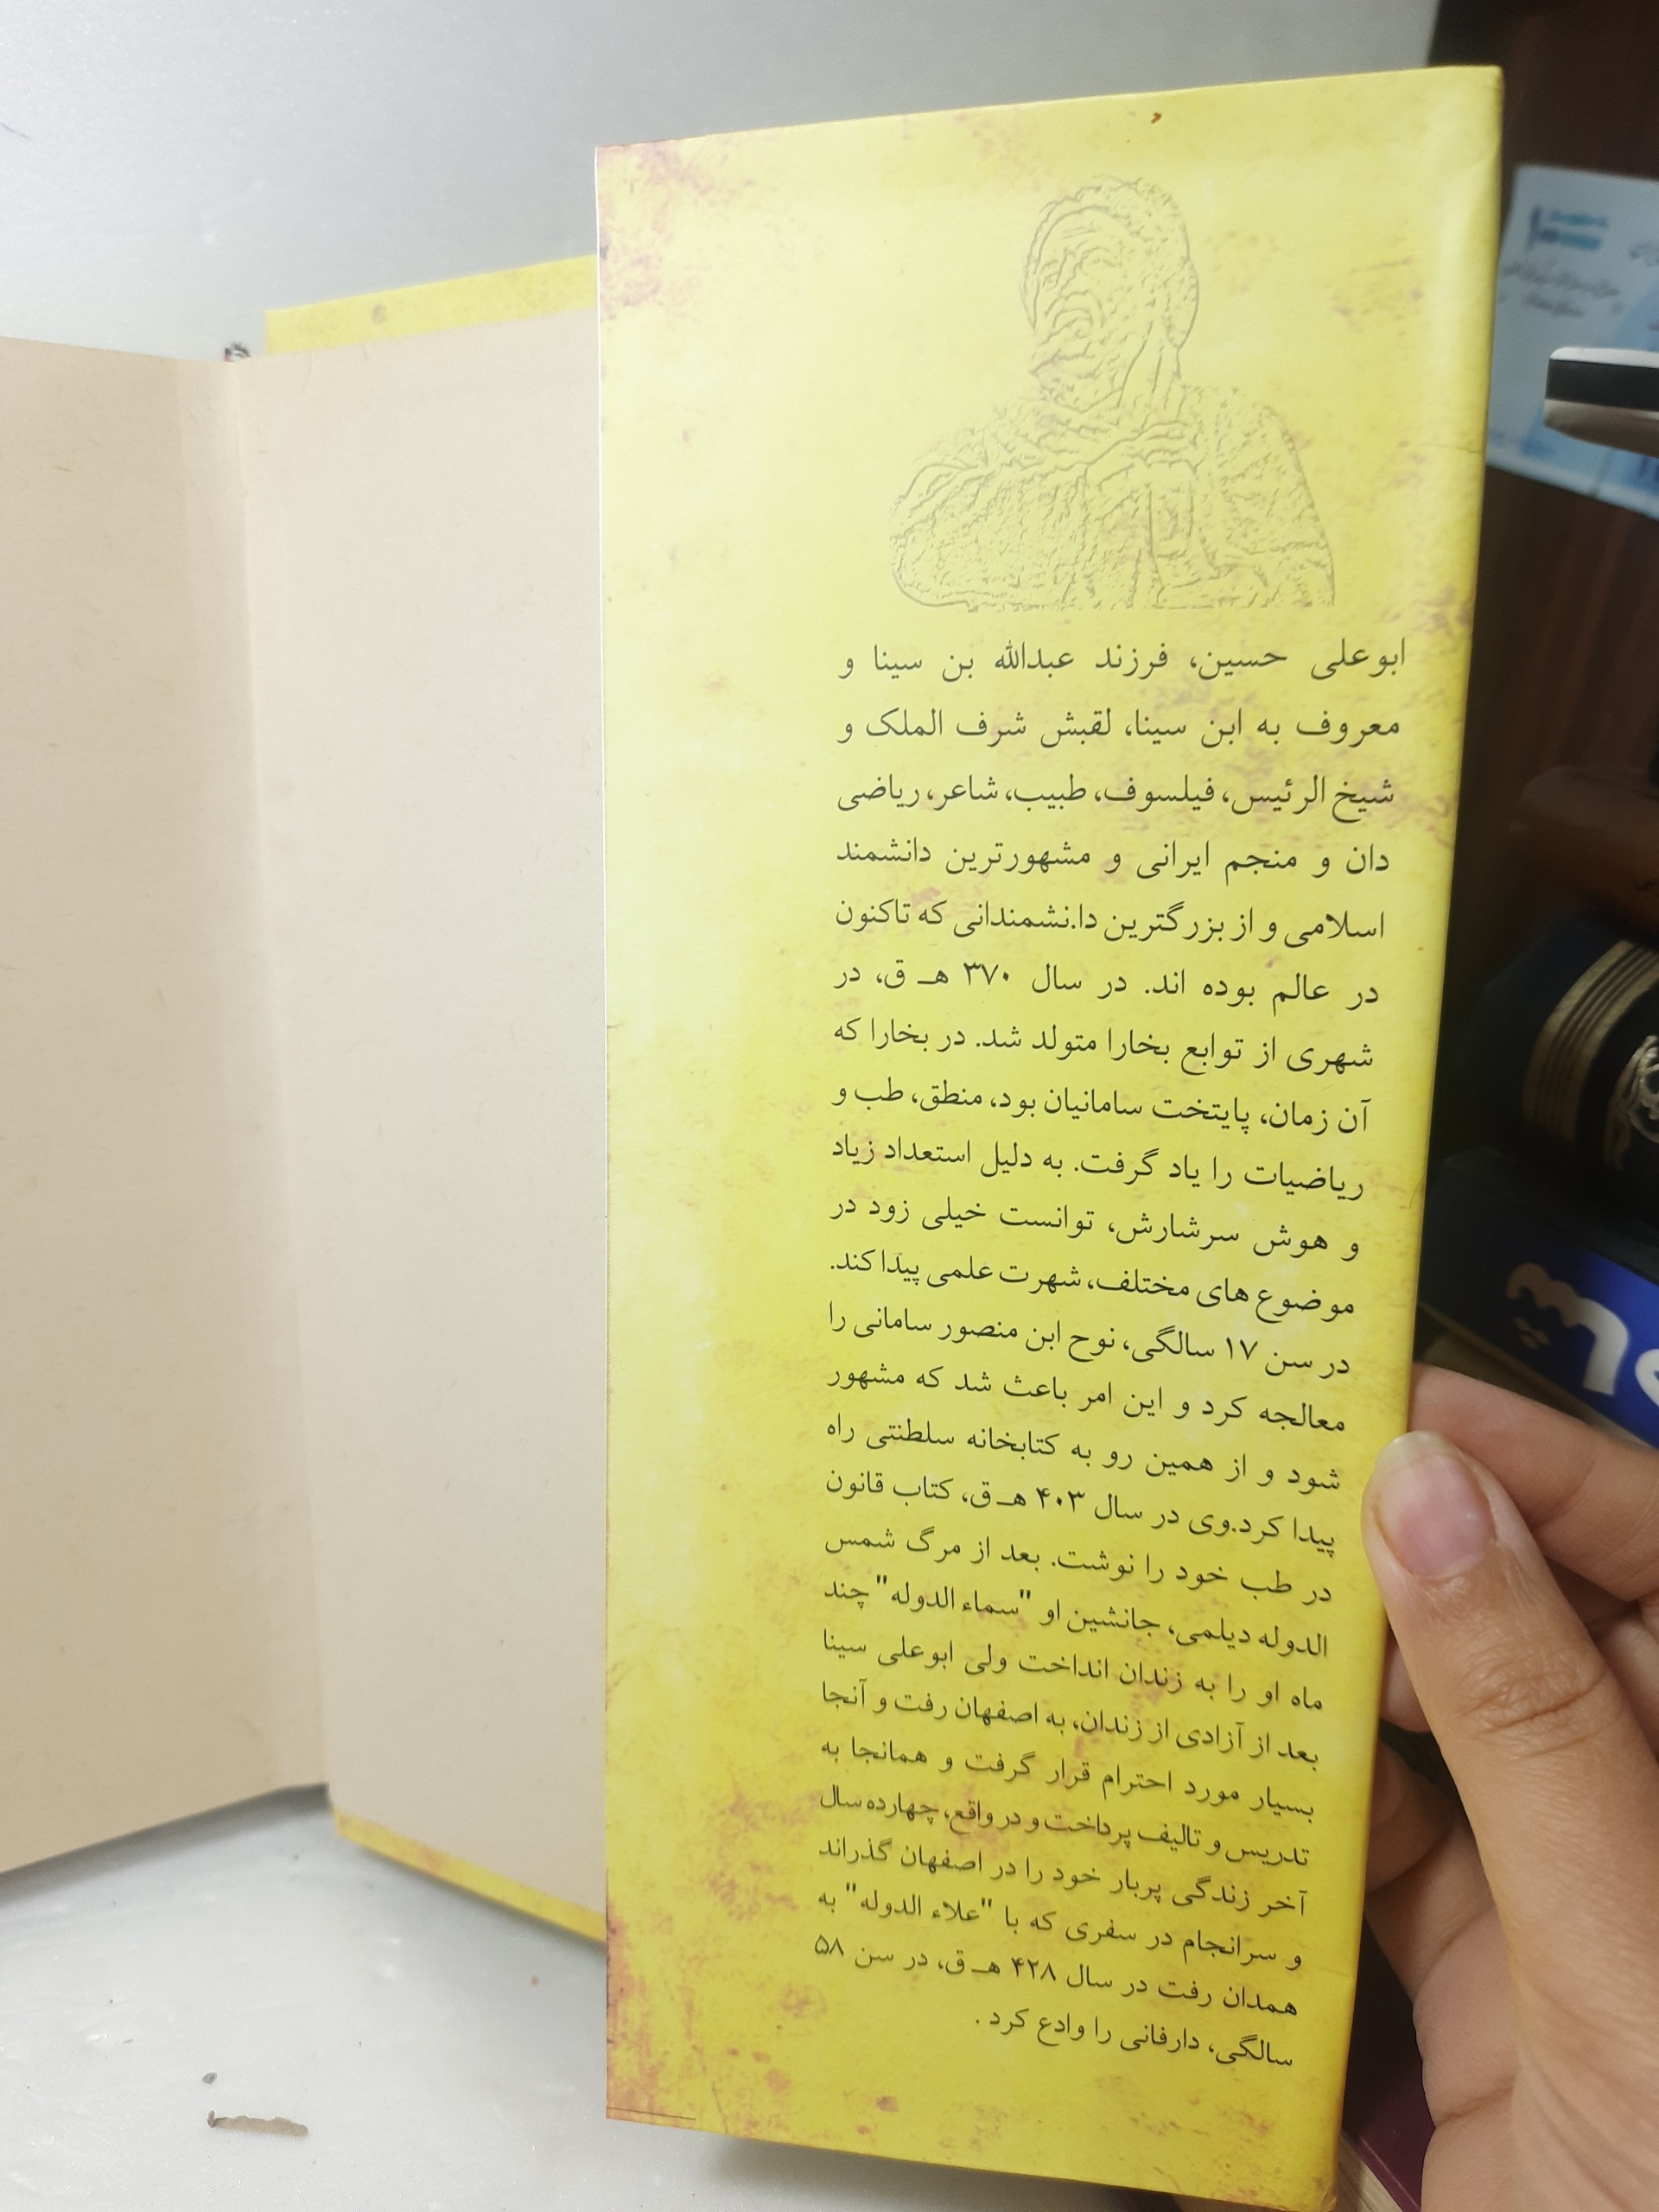 ابوعلی حسین، فرزند عبدالله بن سینا و
معروف به ابن سینا، لقبش شرف الملک و
شیخ الرئیس، فیلسوف، طبیب، شاعر، ریاضی
دان و منجم ایرانی و مشهورترین دانشمند
اسلامی و از بزرگترین دا.نشمندانی که تاکنون
در عالم بوده اند. در سال ۳۷۰ هـ ق، در
شهری از توابع بخارا متولد شد. در بخارا که
آن زمان، پایتخت سامانیان بود، منطق، طب و
ریاضیات را یاد گرفت. به دلیل استعداد زیاد
و هوش سرشارش، توانست خیلی زود در
موضوع های مختلف، شهرت علمی پیدا کند.
در سن ۱۷ سالگی، نوح ابن منصور سامانی را
معالجه کرد و این امر باعث شد که مشهور
شود و از همین رو به کتابخانه سلطنتی راه
پیدا کرد.وی در سال ۴۰۳ هـ ق، کتاب قانون
در طب خود را نوشت. بعد از مرگ شمس
الدوله دیلمی، جانشین او "سماء الدوله" چند
ماه او را به زندان انداخت ولی ابوعلی سینا
بعد از آزادی از زندان، به اصفهان رفت و آنجا
بسیار مورد احترام قرار گرفت و همانجا به
تدریس و تالیف پرداخت و در واقع، چهارده سال
آخر زندگی پربار خود را در اصفهان گذراند
و سرانجام در سفری که با "علاء الدوله" به
همدان رفت در سال ۴۲۸ هـ ق، در سن ۵۸
سالگی، دارفانی را وادع کرد .